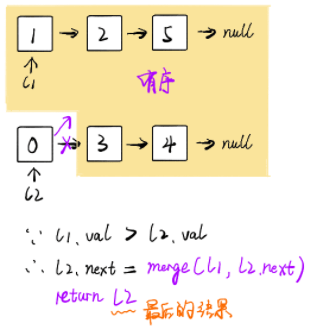 1 → 2 → 5 → null
↑
l1
有序
0 → 3 → 4 → null
↑
l2
∵ l1.val > l2.val
∴ l2.next = merge(l1, l2.next)
return l2
最后的结果